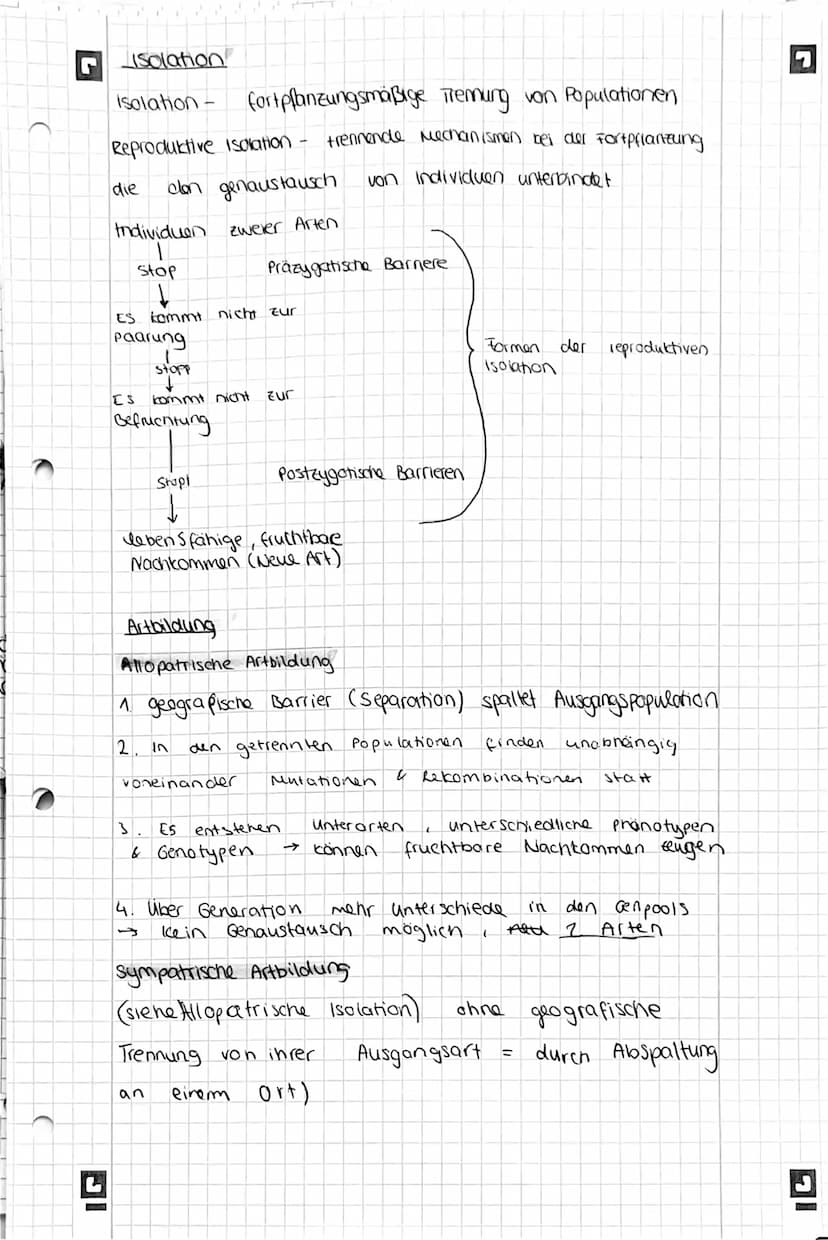 Isolation
Isolation - fortpflanzungsmäßige Trennung von Populationen
Reproduktive Isolation - trennende Mechanismen bei der Fortpflanzung
die den genaustausch von Individuen unterbindet
Individuen zweier Arten
Stop Präzygatische Barriere
Es kommt nicht zur
Paarung
Stopp
Es kommt nicht zur
Befruchtung
Formen der reproduktiven
Isolation
Stopl Postzygotische Barrieren
lebensfähige, fruchtbae
Nachkommen (Neue Art)
Artbildung
Allopatrische Artbildung
1 geografische Barrier (Separation) spaltet Ausgangspopulation
2. In den getrennten Populationen finden unabhängig
voneinander Mutationen & Rekombinationen statt
3. Es entstehen Unterarten, unterschiedliche Phänotypen
& Genotypen → können fruchtbare Nachkommen zeugen
4. Über Generation mehr Unterschiede in den Genpools
→ Kein Genaustausch möglich, 2 Arten
Sympatrische Artbildung
(siehe Allopatrische Isolation) ohne geografische
Trennung von ihrer Ausgangsart = durch Abspaltung
an einem Ort)